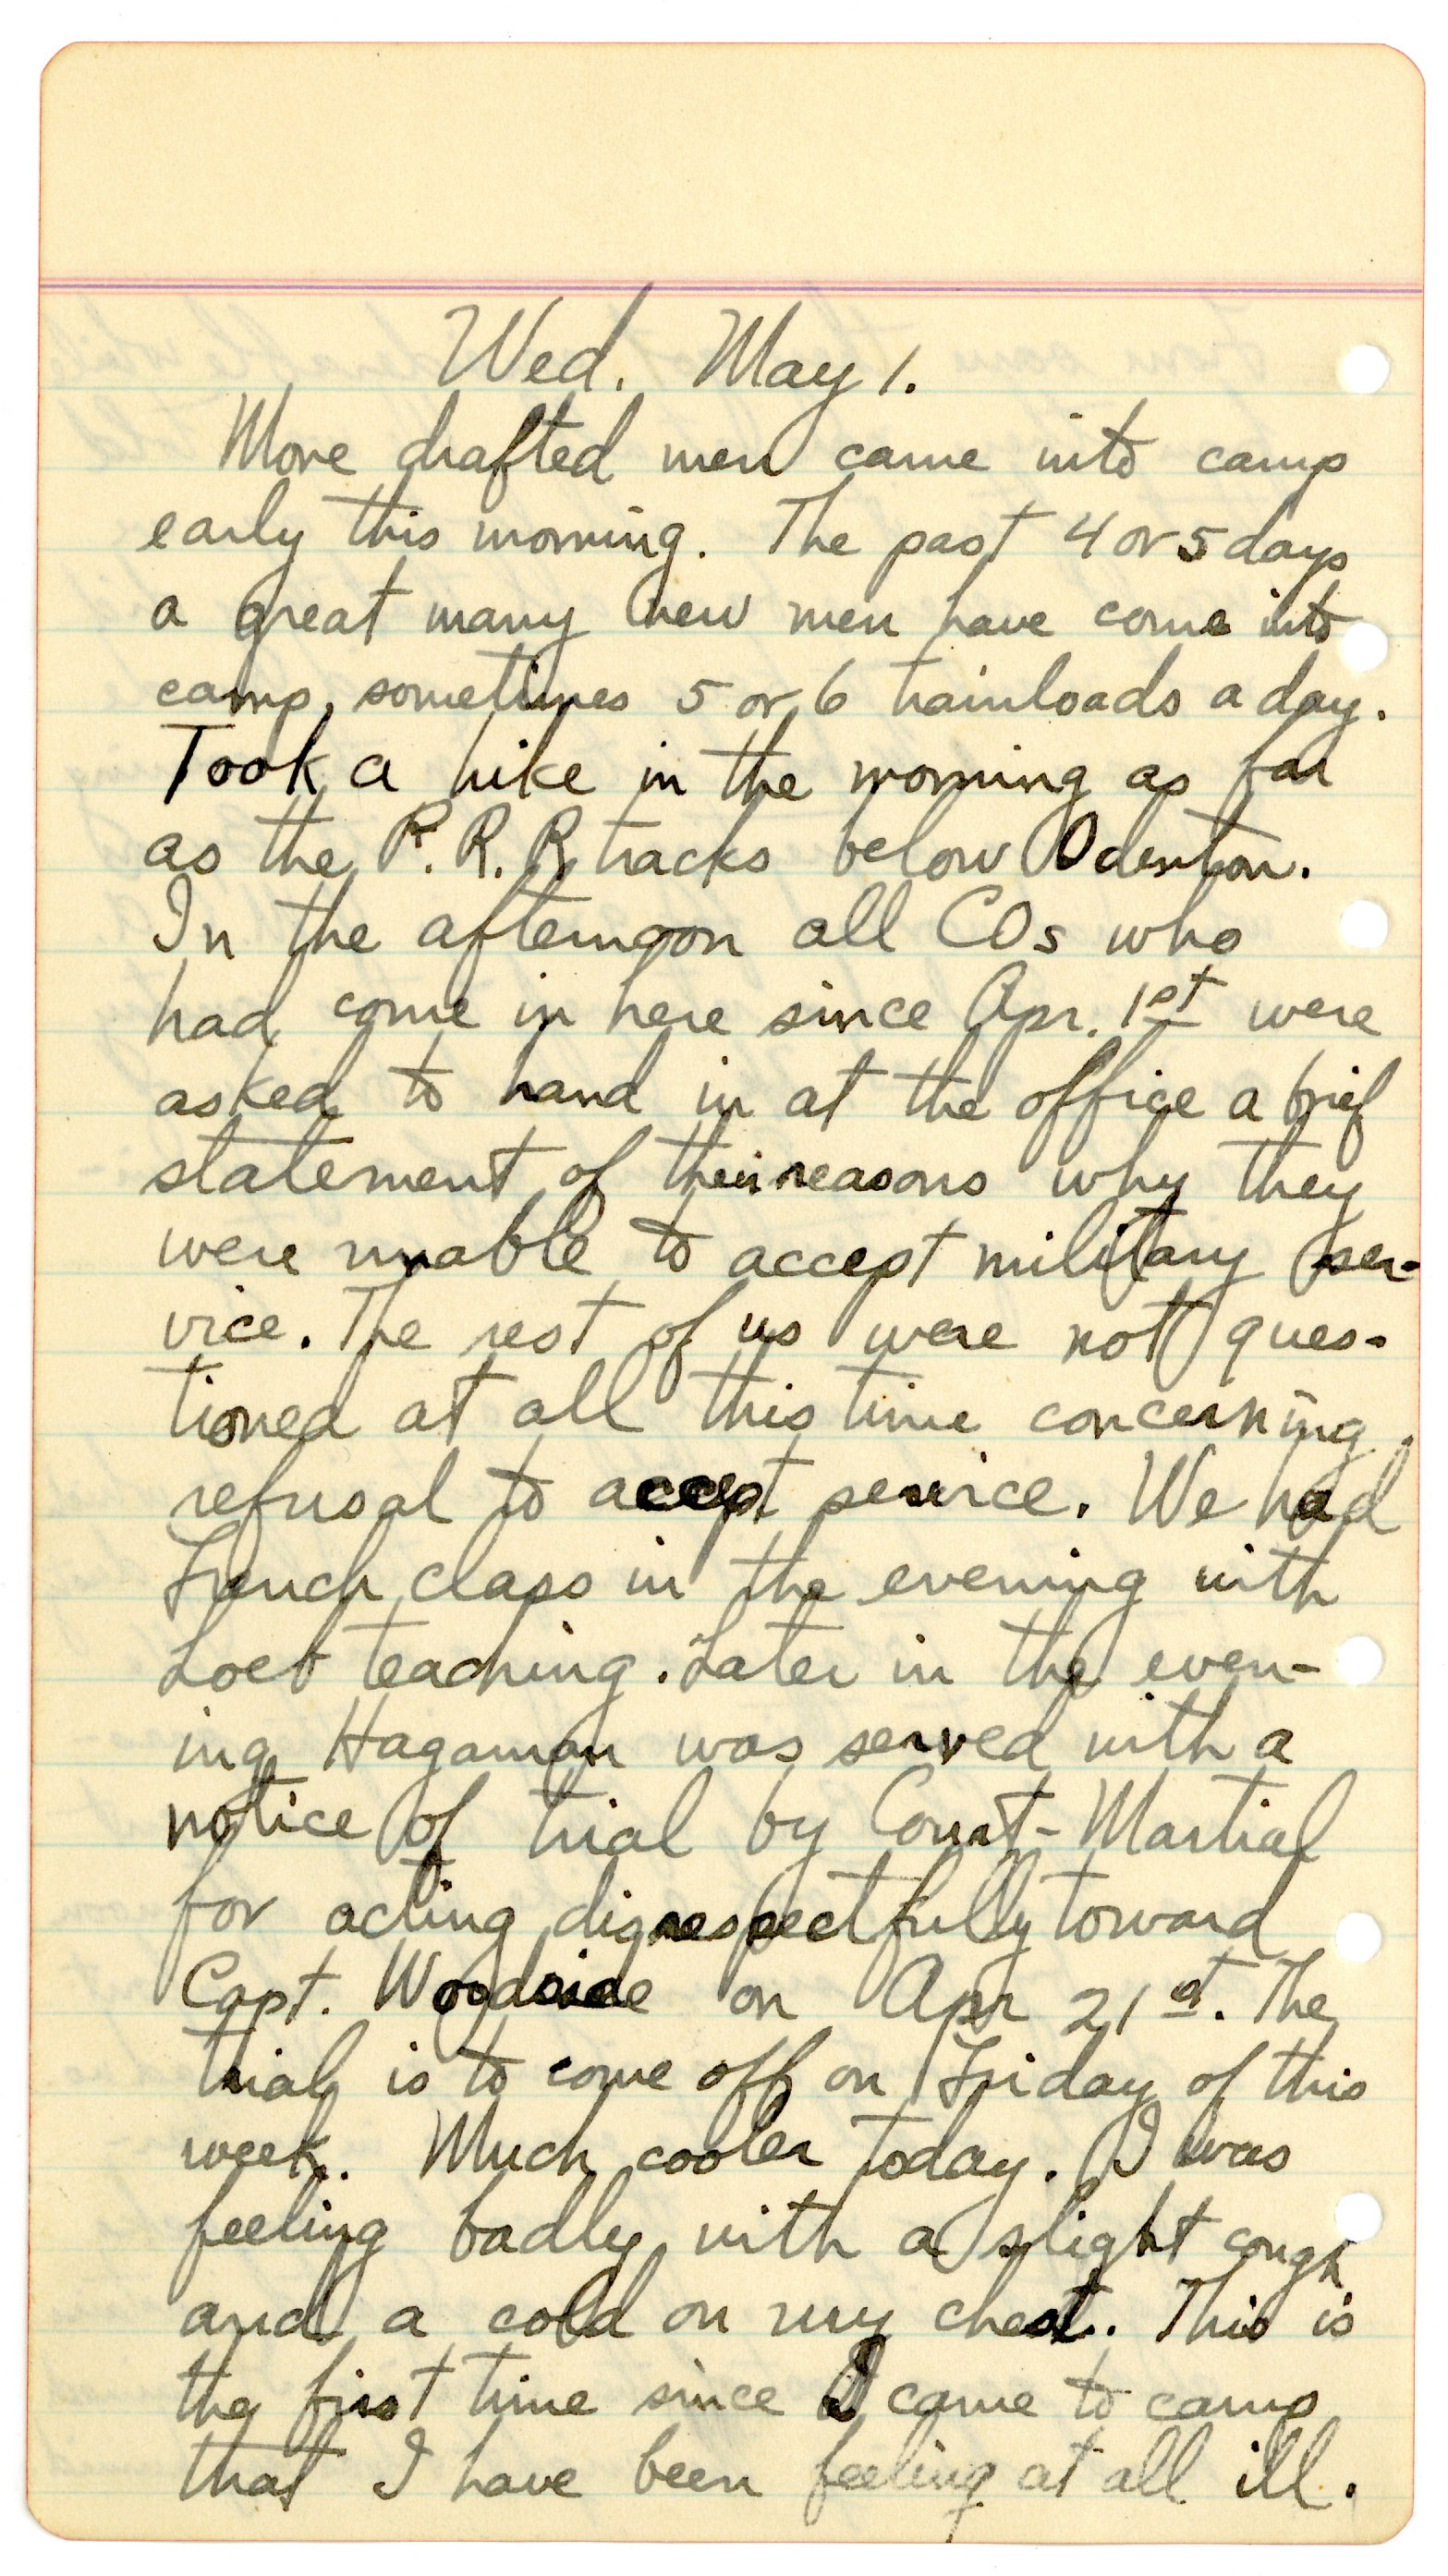 Wed. May 1.
More drafted men came into camp
early this morning. The past 4 or 5 days
a great many new men have come into
camp, sometimes 5 or 6 trainloads a day.
Took a hike in the morning as far
as the P.R.R. tracks below Odenton.
In the afternoon all COs who
had come in here since Apr. 1st were
asked to hand in at the office a brief
statement of their reasons why they
were unable to accept military ser-
vice. The rest of us were not ques-
tioned at all this time concerning
refusal to accept service. We had
French class in the evening with
Loeb teaching. Later in the even-
ing Hagaman was served with a
notice of trial by Court-Martial
for acting disrespectfully toward
Capt. on Apr 21st. The
trial is to come off on Friday of this
week. Much cooler today. I was
feeling badly with a slight cough
and a cold on my chest. This is
the first time since I came to camp
that I have been feeling at all ill.